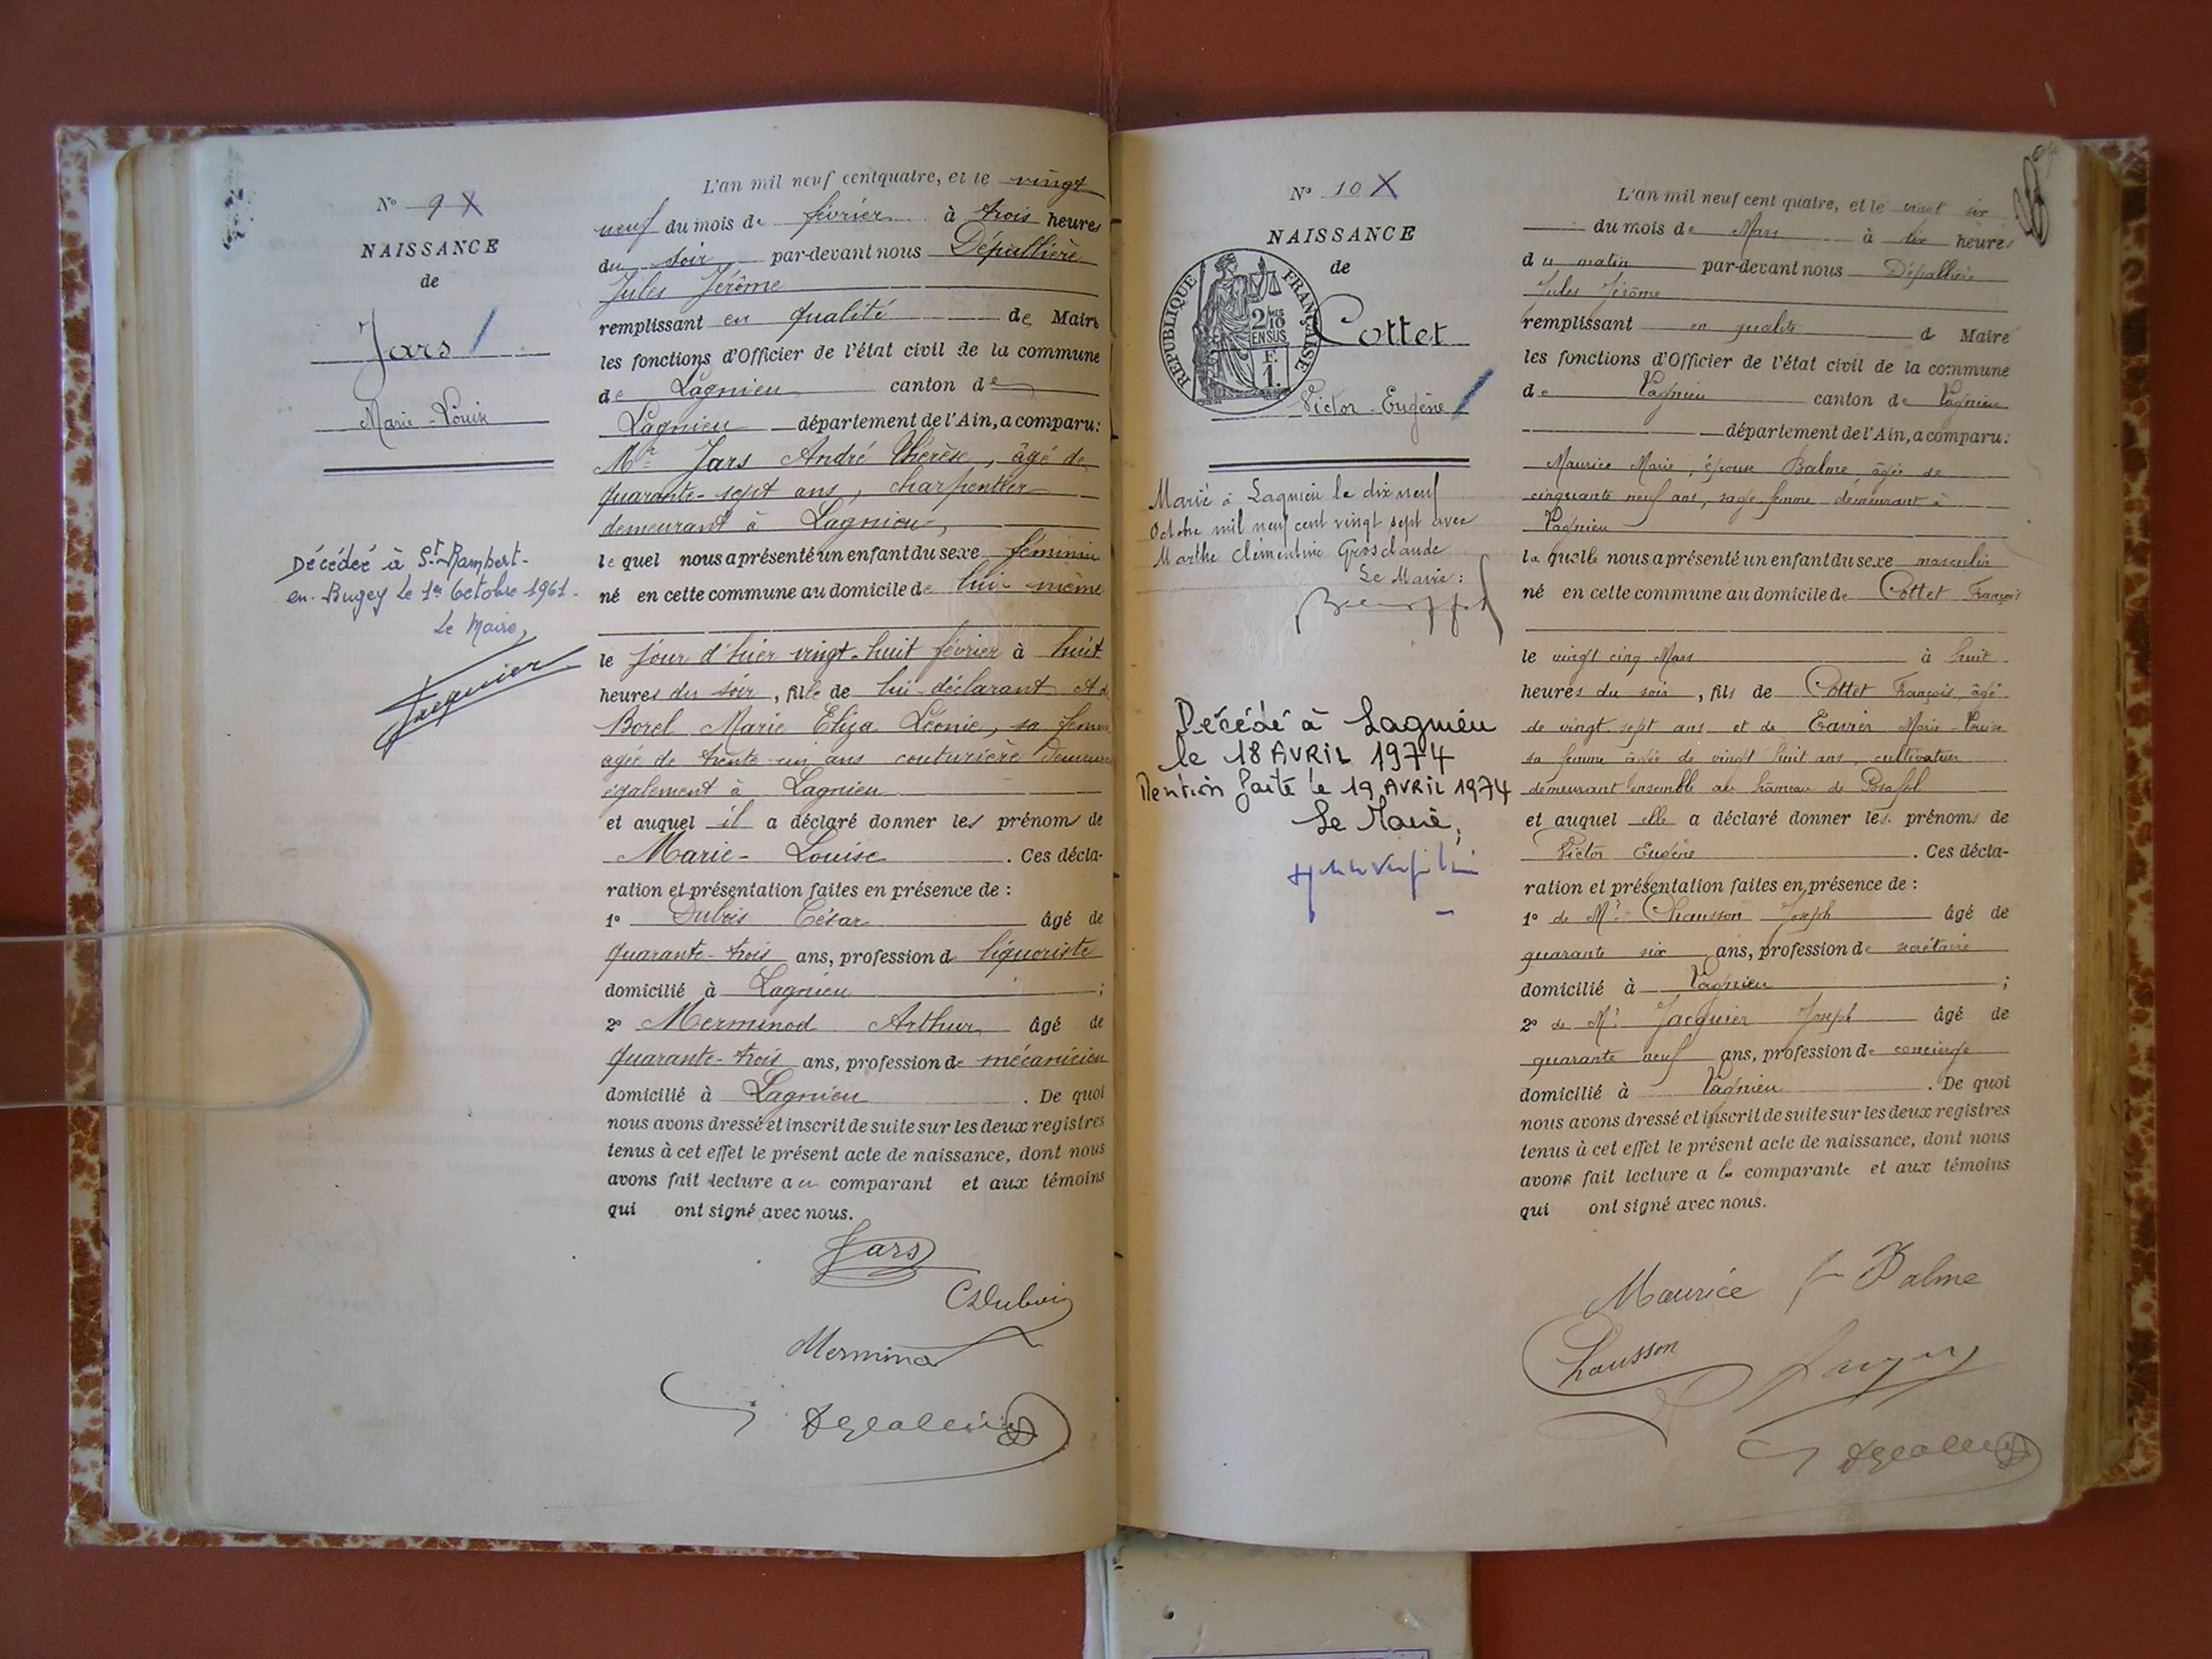 N° 9 X
NAISSANCE
de
Jars
Marie-Louise
Décédée à St-Rambert-
en-Bugey le 1er Octobre 1961.
Le Maire,
L'an mil neuf cent quatre, et le vingt
neuf du mois de février à trois heures
du soir par-devant nous Dépallière
Jules Jérôme
remplissant en qualité de Maire
les fonctions d'Officier de l'état civil de la commune
de Lagnieu canton de
Lagnieu département de l'Ain, a comparu:
Mr Jars André Thérèse, âgé de
quarante-sept ans, charpentier
demeurant à Lagnieu,
lequel nous a présenté un enfant du sexe féminin
né en cette commune au domicile de lui-même
le jour d'hier vingt-huit février à huit
heures du soir, fille de lui-déclarant et de
Borel Marie Eliza Léonie, sa femme
agée de trente-un ans couturière demeurant
également à Lagnieu
et auquel il a déclaré donner les prénoms de
Marie-Louise. Ces décla-
ration et présentation faites en présence de :
1° Dubois César âgé de
quarante-trois ans, profession de liquoriste
domicilié à Lagnieu ;
2° Merminod Arthur âgé de
quarante-trois ans, profession de mécanicien
domicilié à Lagnieu. De quoi
nous avons dressé et inscrit de suite sur les deux registres
tenus à cet effet le présent acte de naissance, dont nous
avons fait lecture au comparant et aux témoins
qui ont signé avec nous.
Jars
CDubois
Merminod
N° 10 X
NAISSANCE
de
REPUBLIQUE FRANÇAISE
2/10 MES
EN SUS
F.
1.
Cottet
Victor-Eugène
Marié à Lagnieu le dix neuf
Octobre mil neuf cent vingt sept avec
Marthe Clémentine Grosclaude
Le Maire:
Décédé à Lagnieu
le 18 AVRIL 1974
Mention faite le 19 AVRIL 1974
Le Maire,
L'an mil neuf cent quatre, et le vingt six
du mois de Mars à dix heures
du matin par-devant nous Dépallière
Jules Jérôme
remplissant en qualité de Maire
les fonctions d'Officier de l'état civil de la commune
de Lagnieu canton de Lagnieu
département de l'Ain, a comparu:
Maurice Marie, épouse Balme âgée de
cinquante neuf ans, sage-femme demeurant à
Lagnieu
laquelle nous a présenté un enfant du sexe masculin
né en cette commune au domicile de Cottet François
le vingt cinq Mars à huit
heures du soir, fils de Cottet François, âgé
de vingt sept ans et de Marie-Louise
sa femme âgée de vingt huit ans, cultivateurs
demeurant ensemble au hameau de Posafol
et auquel elle a déclaré donner les prénoms de
Victor Eugène. Ces décla-
ration et présentation faites en présence de :
1° de Mr Chausson Joseph âgé de
quarante six ans, profession de secrétaire
domicilié à Lagnieu ;
2° de Mr Jacquier Joseph âgé de
quarante neuf ans, profession de concierge
domicilié à Lagnieu. De quoi
nous avons dressé et inscrit de suite sur les deux registres
tenus à cet effet le présent acte de naissance, dont nous
avons fait lecture a la comparante et aux témoins
qui ont signé avec nous.
Maurice f Balme
Chausson